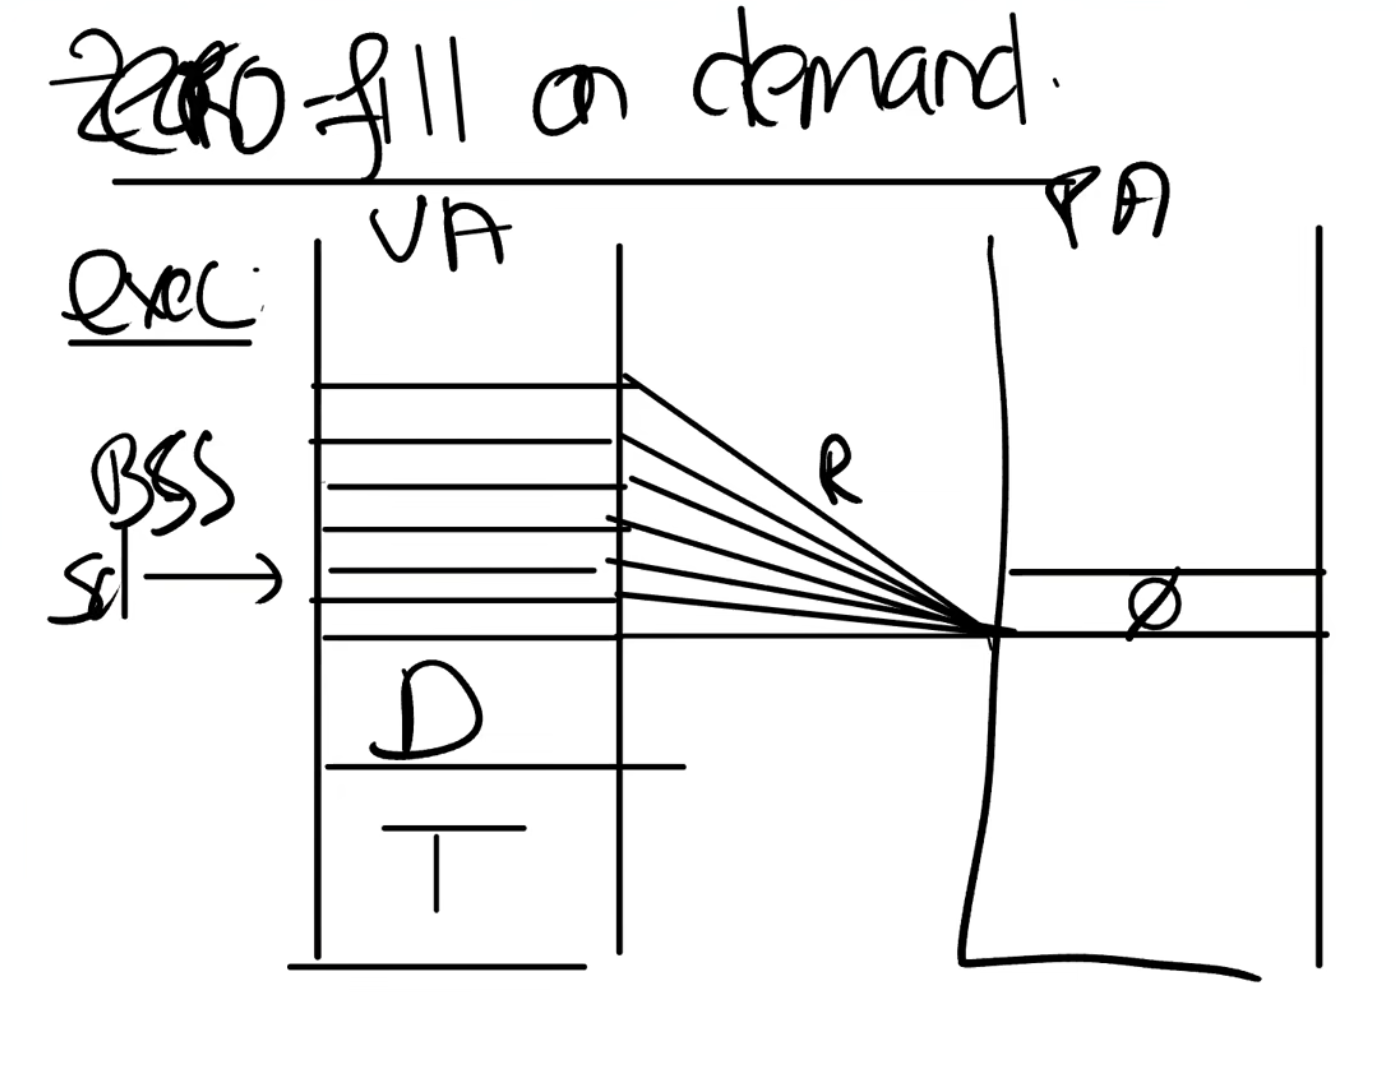 zero-fill on demand.
VA
PA
exec:
BSS
R
Ø
D
T